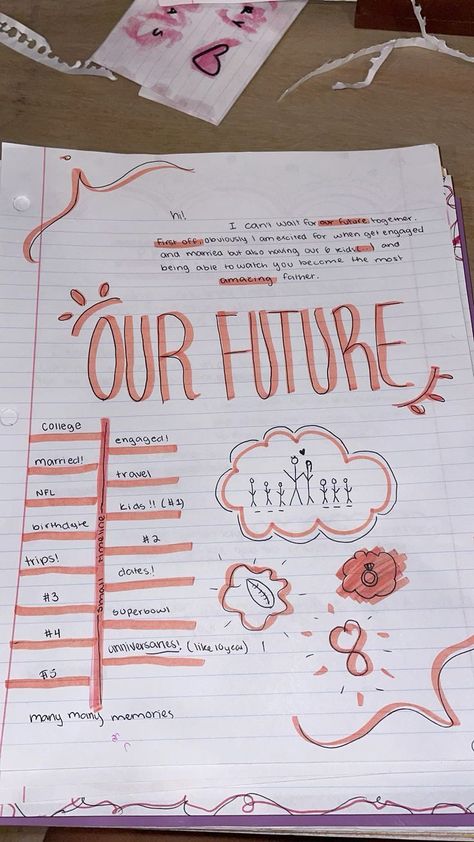 hi!
I can't wait for our future together.
First off, obviously I am excited for when get engaged
and married but also having our 6 kids(...) and
being able to watch you become the most
amazing father.
OUR FUTURE
college
engaged!
married!
travel
NFL
kids!! (#1)
birthdate
#2
trips!
dates!
#3
superbowl
#4
anniversaries! (like 10 year)
#5
small timeline
many many memories